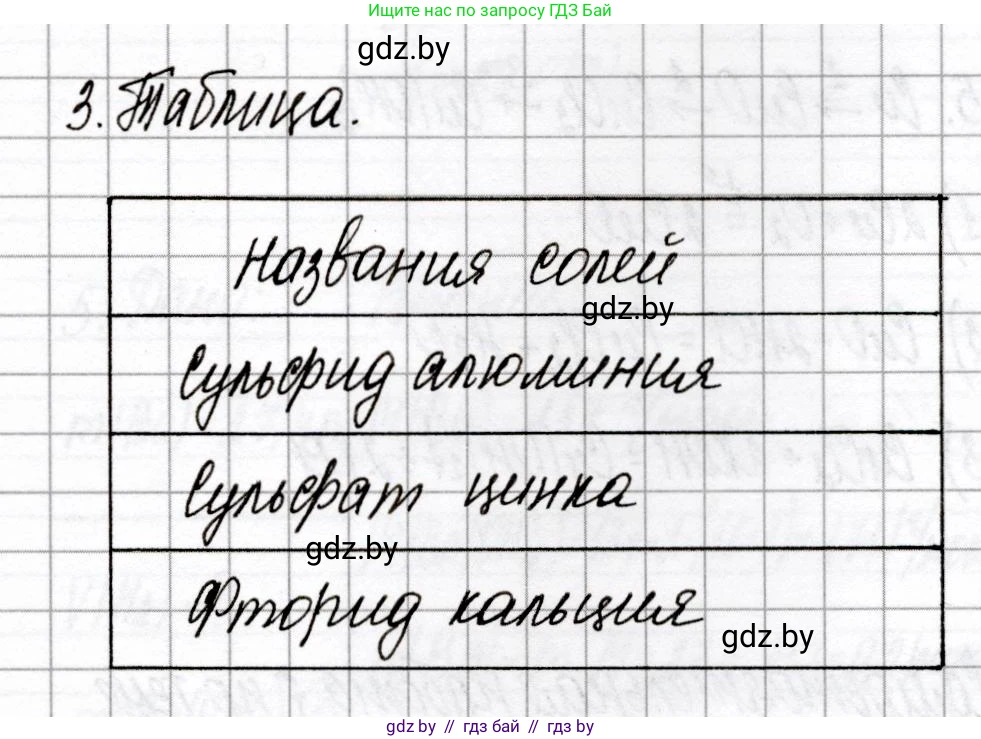 Ищите нас по запросу ГДЗ Бай
gdz.by
3. Таблица.
Названия солей
gdz.by
Сульфид алюминия
Сульфат цинка
gdz.by
Фторид кальция
gdz.by
gdz by // гдз бай // гдз by